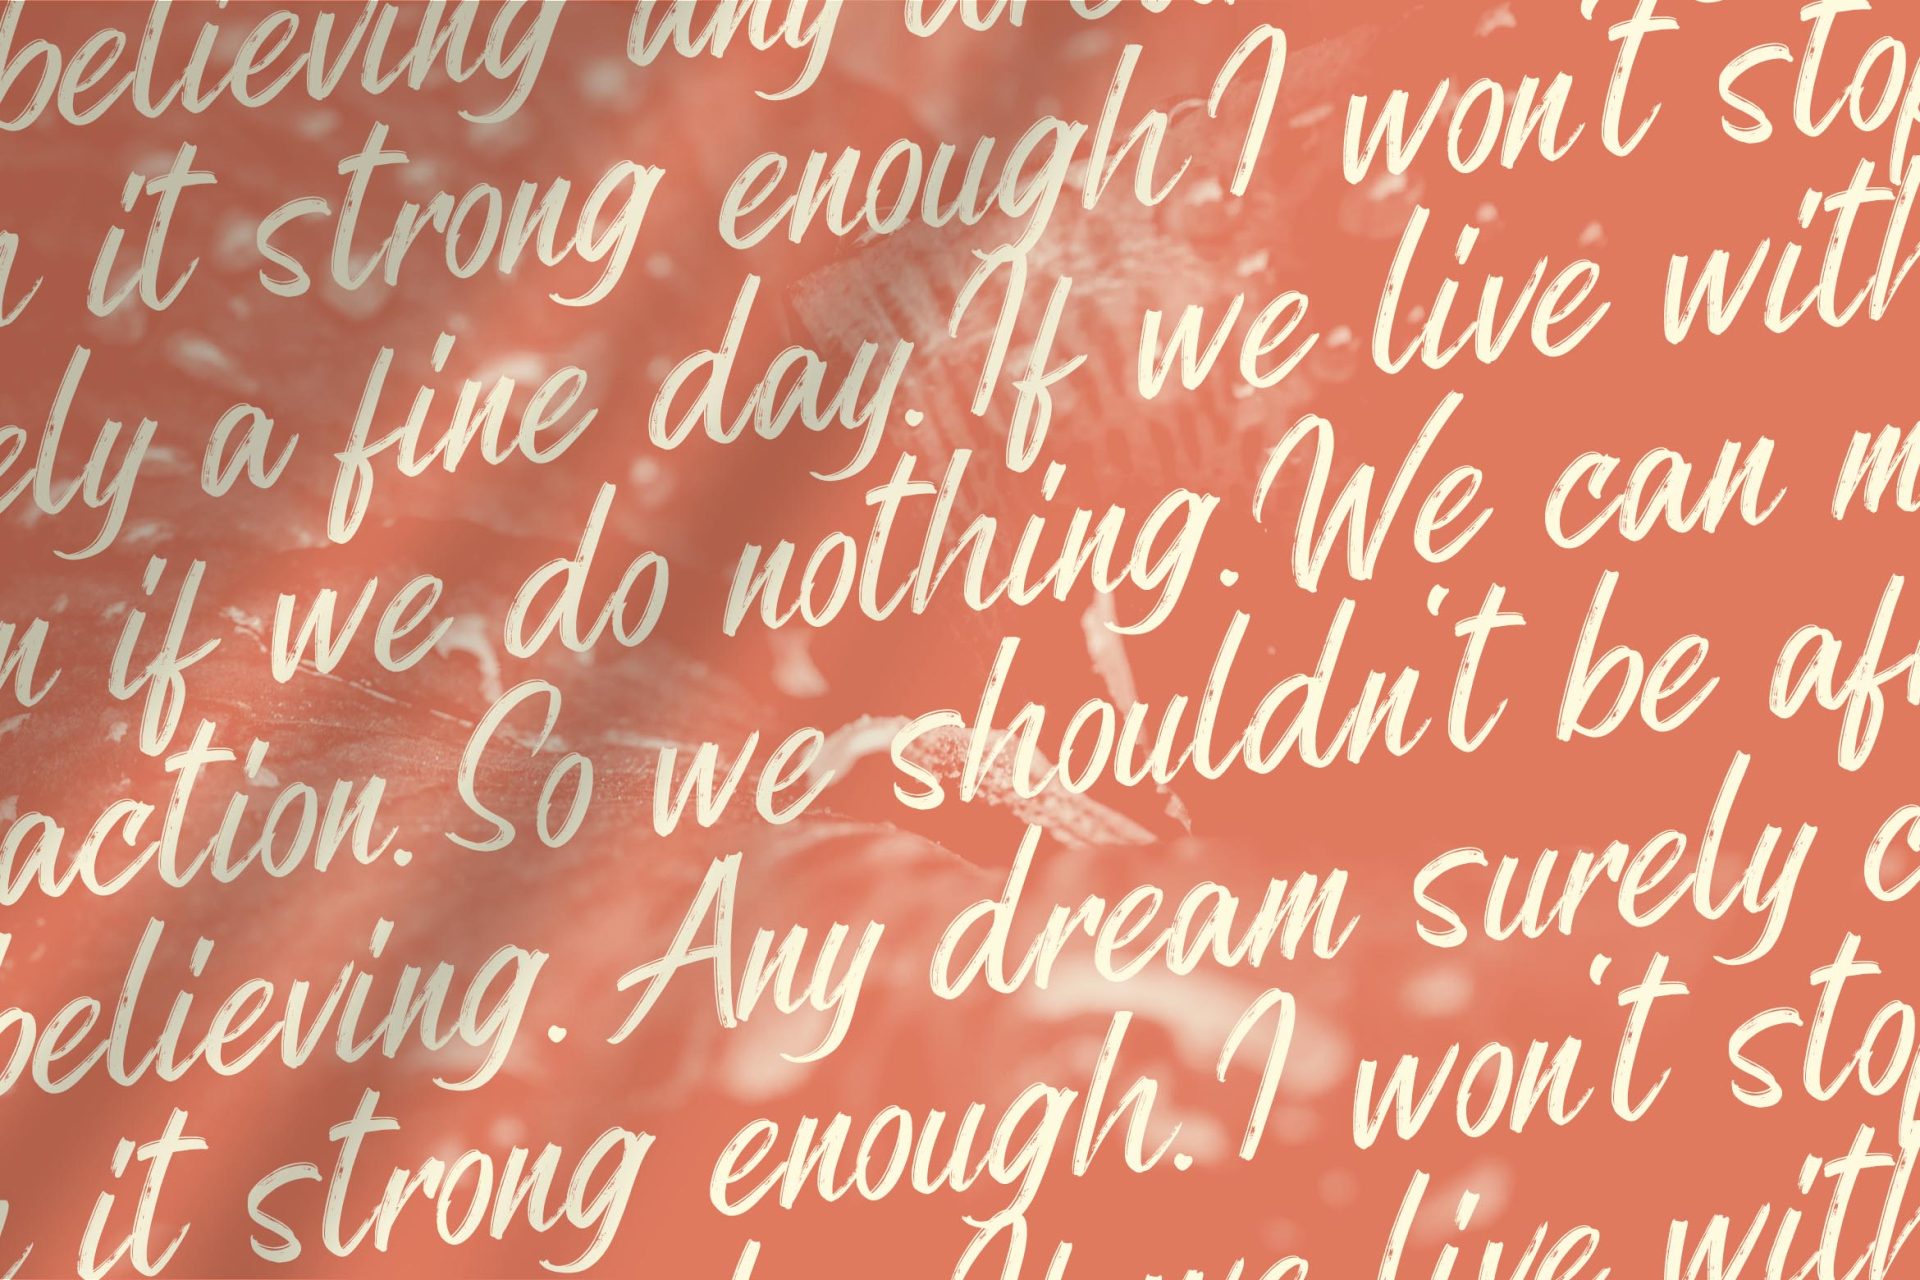 believing any
it strong enough I won't stop
a fine day. If we live with
if we do nothing. We can
action. So we shouldn't be
believing. Any dream surely
it strong enough. I won't stop
we live with